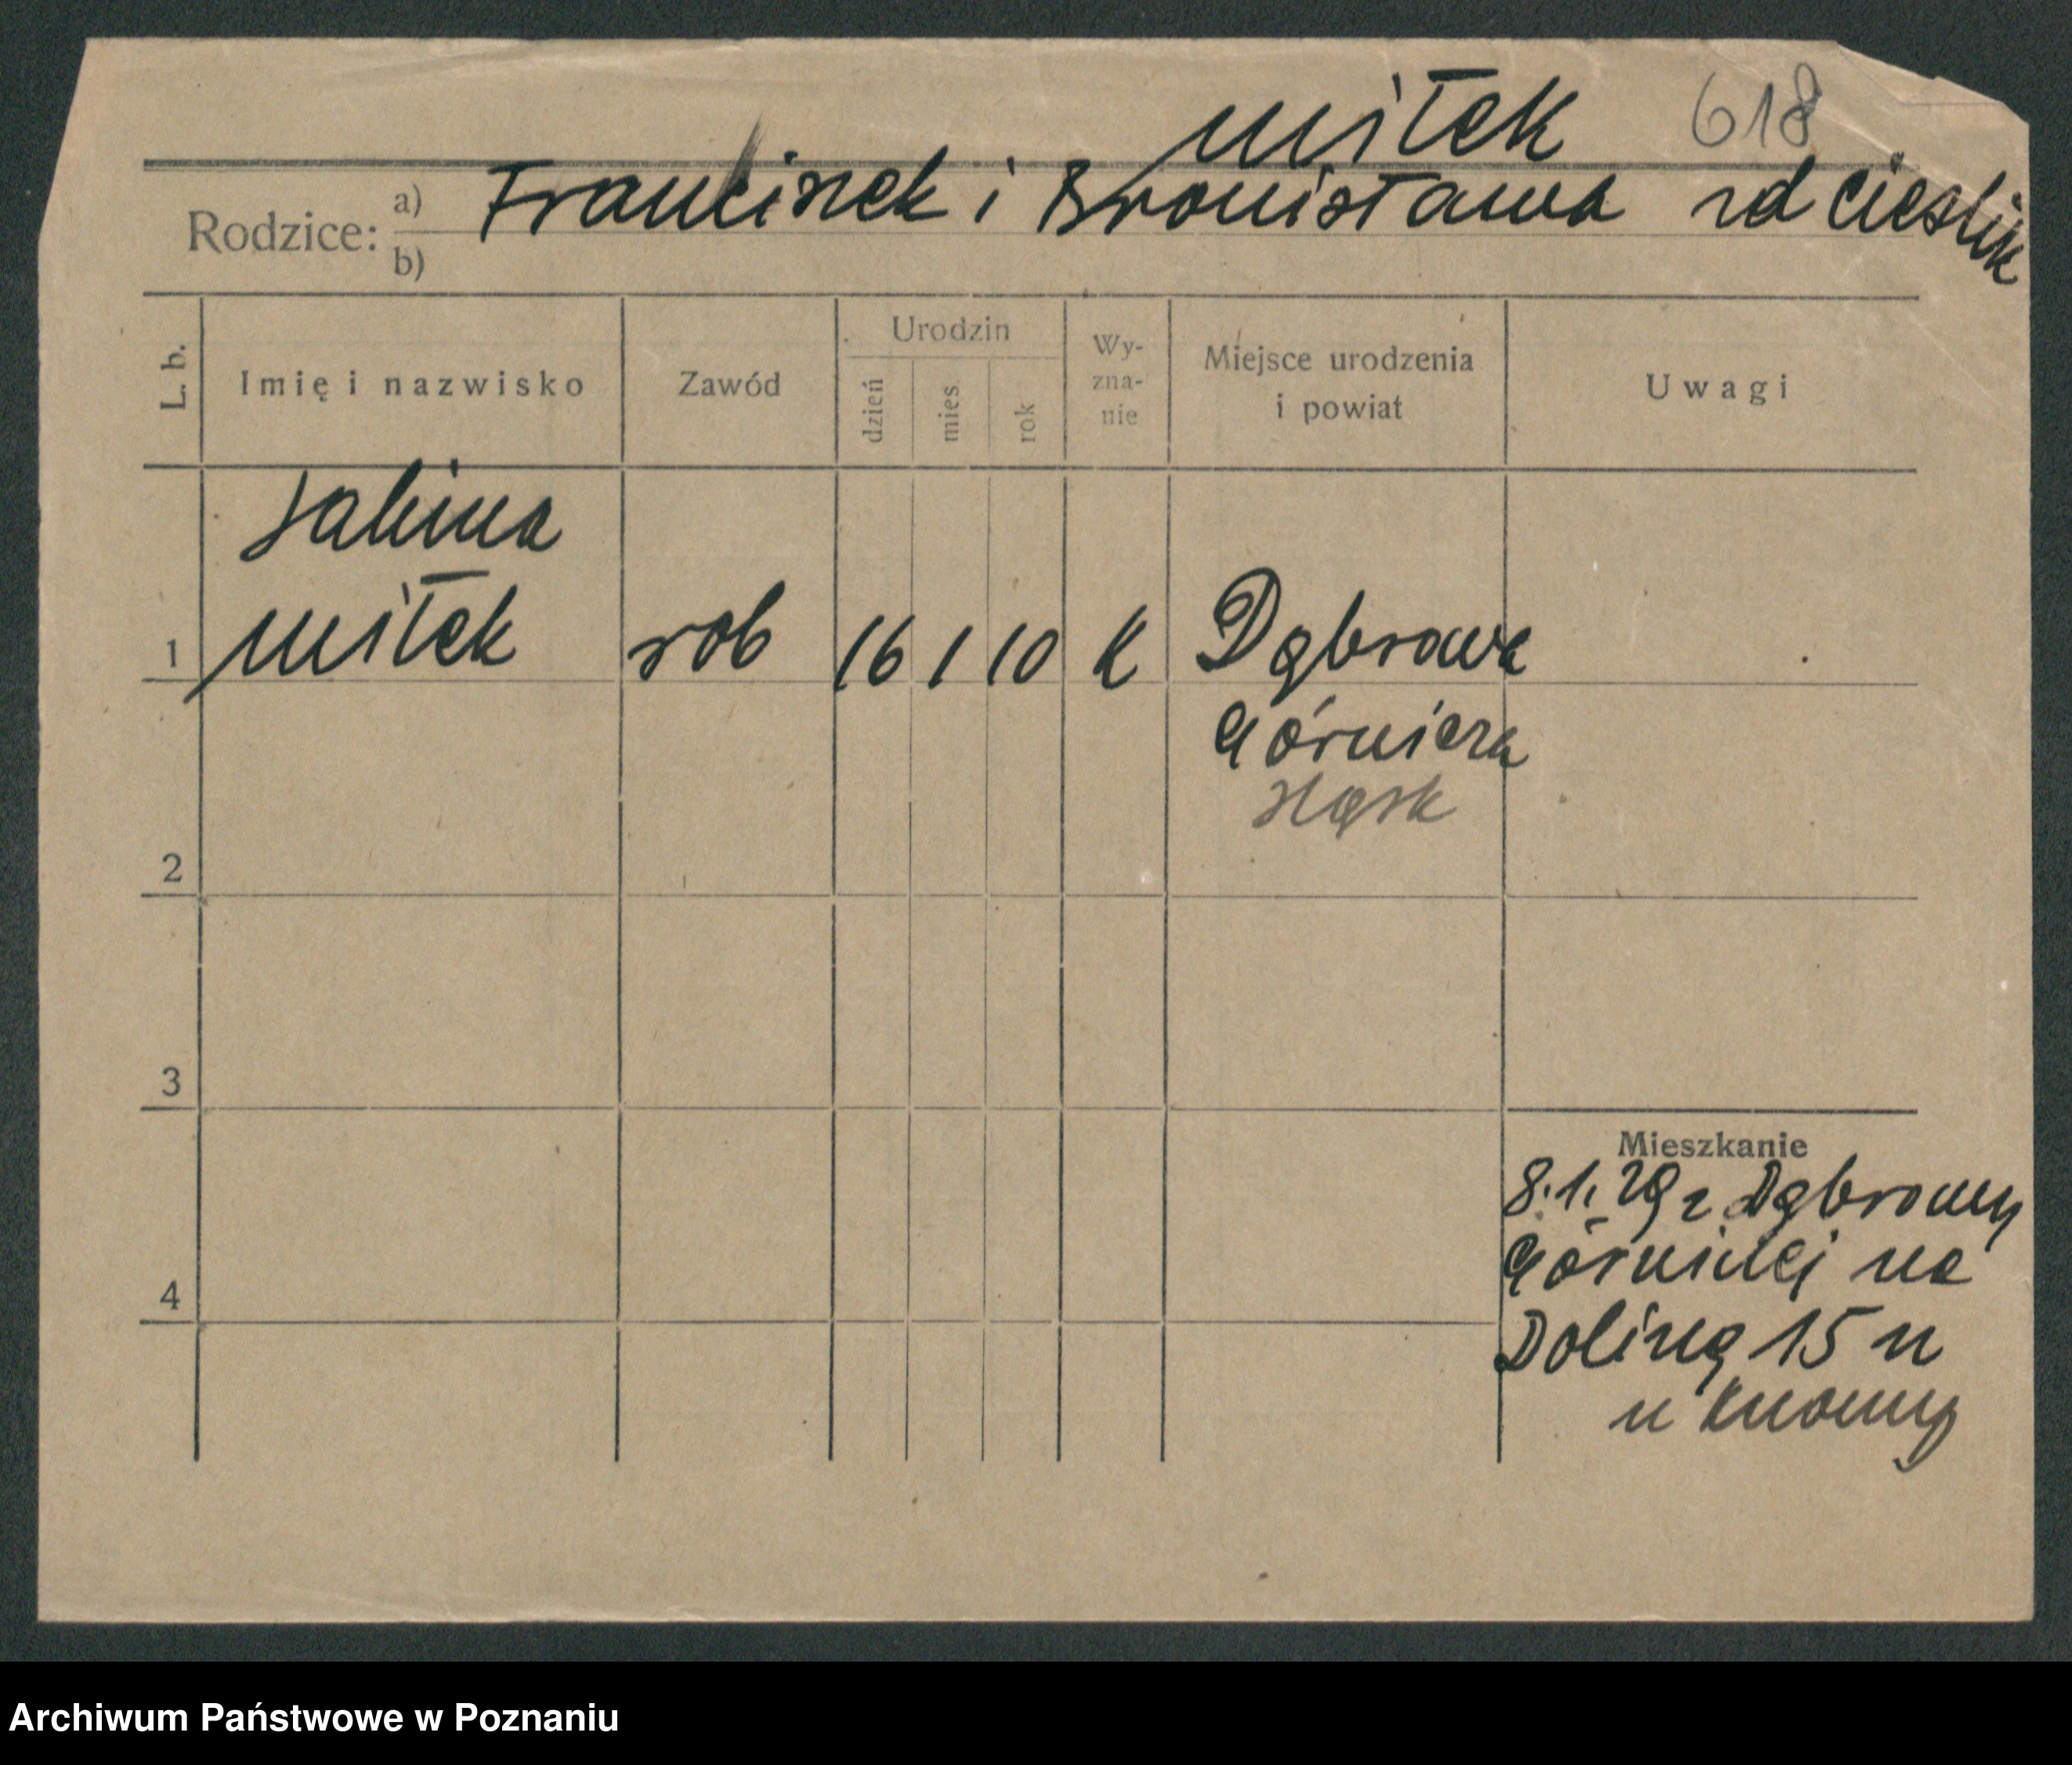 Miłek 618
Rodzice: a) Franciszek i Bronisława zd Cieslik
b)
L. b.
Imię i nazwisko
Zawód
Urodzin
dzień
mies.
rok
Wy-
zna-
nie
Miejsce urodzenia
i powiat
Uwagi
Sabina
1 Miłek rob 16 1 10 K Dąbrowa
Górnicza
Sląsk
2
3
4
Mieszkanie
8.1.29 z Dąbrowy
Górniczej na
Doliną 15 n
u
Archiwum Państwowe w Poznaniu